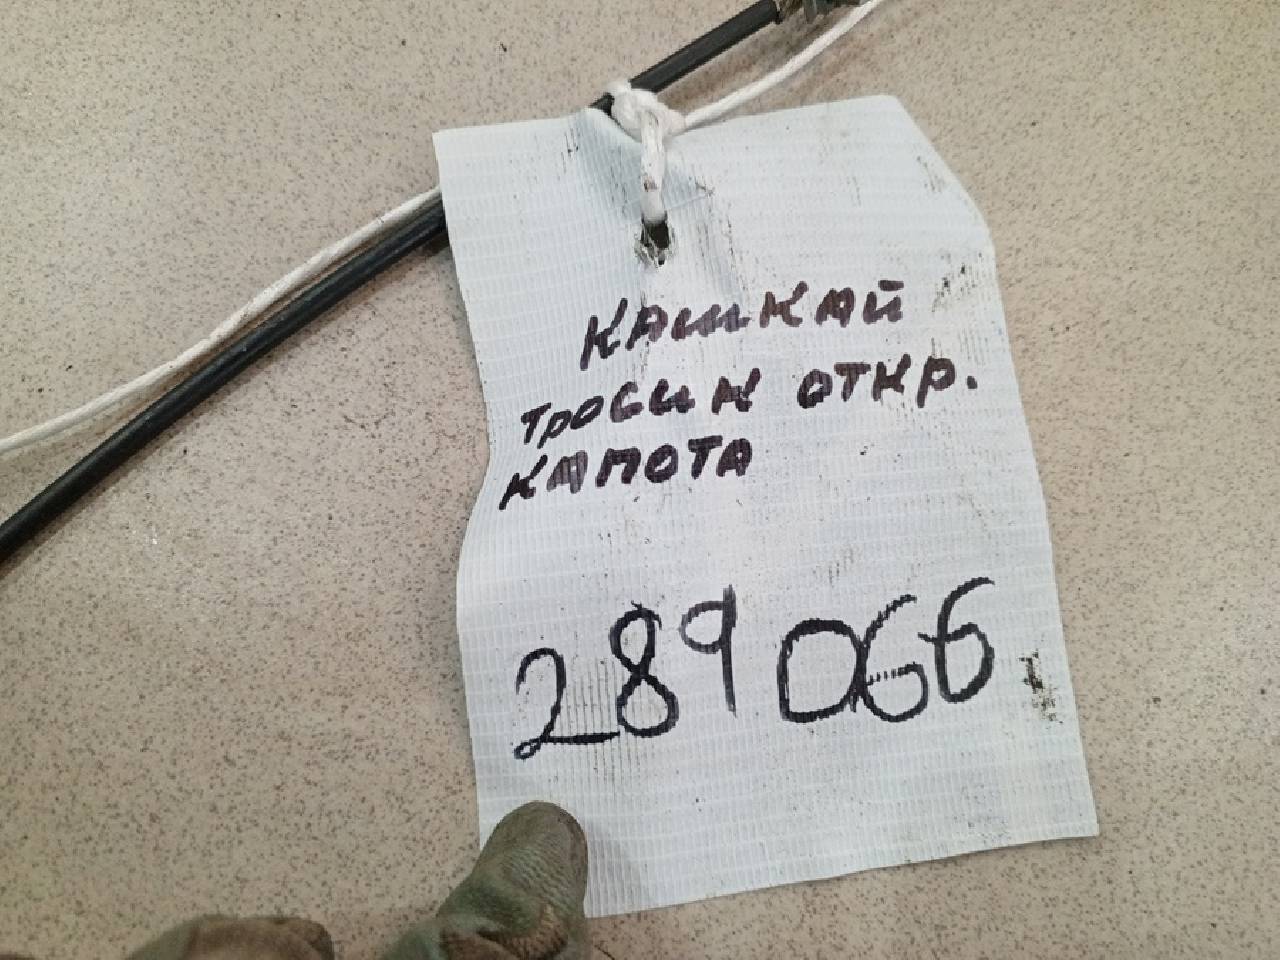 Кашкай
тросик откр.
капота
289066